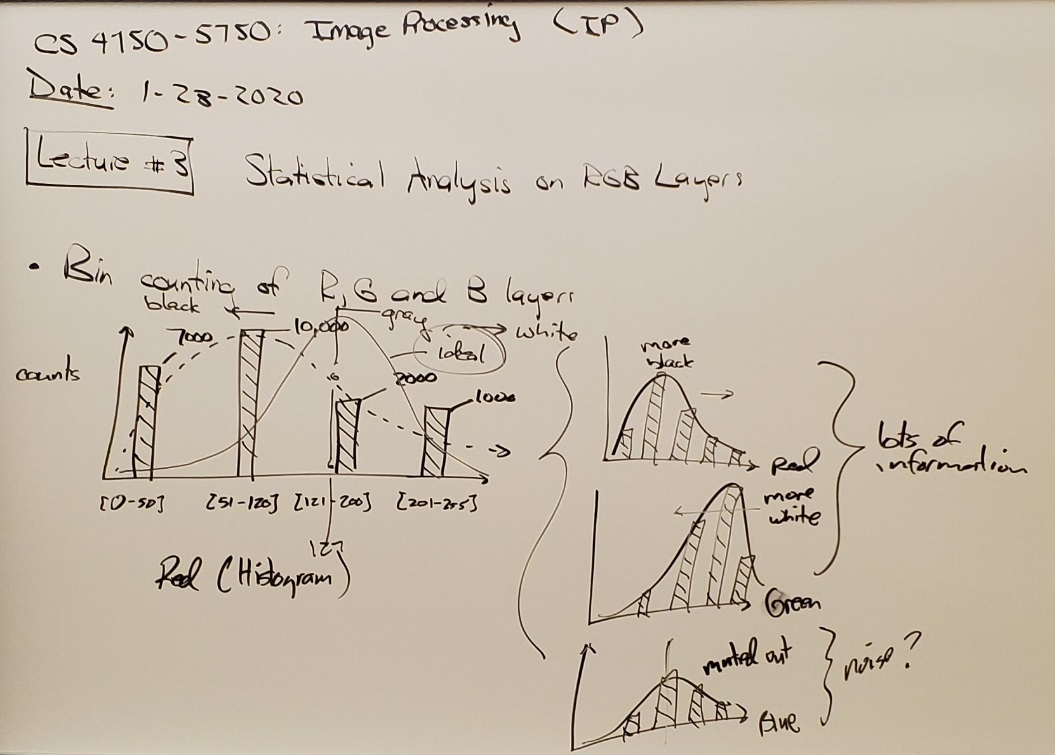 CS 4750-5750: Image Processing (IP)
Date: 1-28-2020
Lecture #3 Statistical Analysis on RGB Layers
• Bin counting of R, G and B layers
black
gray
white
7000
10,000
ideal
counts
2000
1000
[0-50] [51-120] [121-200] [201-255]
127
Red (Histogram)
more
black
Red
lots of
information
more
white
Green
muted out
noise?
Blue